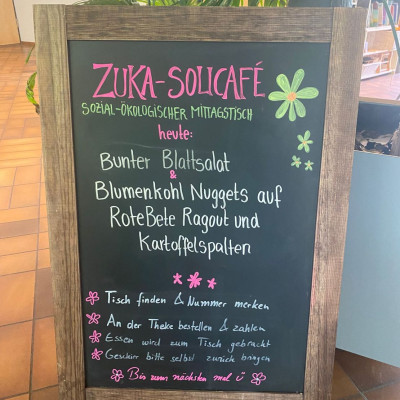 ZUKA-SOLICAFÉ
SOZIAL-ÖKOLOGISCHER MITTAGSTISCH
heute:
Bunter Blattsalat
&
Blumenkohl Nuggets auf
Rote Bete Ragout und
Kartoffelspalten
Tisch finden & Nummer merken
An der Theke bestellen & zahlen
Essen wird zum Tisch gebracht
Geschirr bitte selbst zurück bringen
Bis zum nächsten mal ü